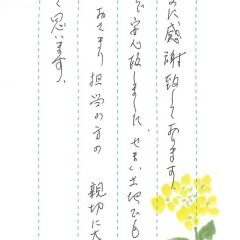 に感謝致しております、
で安心致しました、せまい土地でも
あきまり担当の方の 親切に大
と思います、